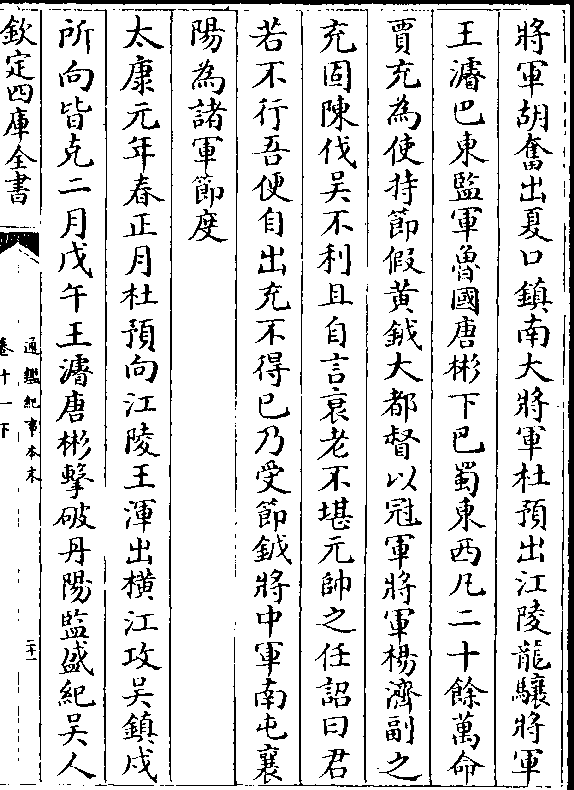 將軍胡奮出夏口鎮南大將軍杜預出江陵龍驤將軍
王濬巴東監軍魯國唐彬下巴蜀東西凡二十餘萬命
賈充為使持節假黃鉞大都督以冠軍將軍楊濟副之
充固陳伐吳不利且自言衰老不堪元帥之任詔曰君
若不行吾便自出充不得已乃受節鉞將中軍南屯襄
陽為諸軍節度
太康元年春正月杜預向江陵王渾出橫江攻吳鎮戍
所向皆克二月戊午王濬唐彬擊破丹陽監盛紀吳人
欽定四庫全書
通鑑紀事本末
卷十一下